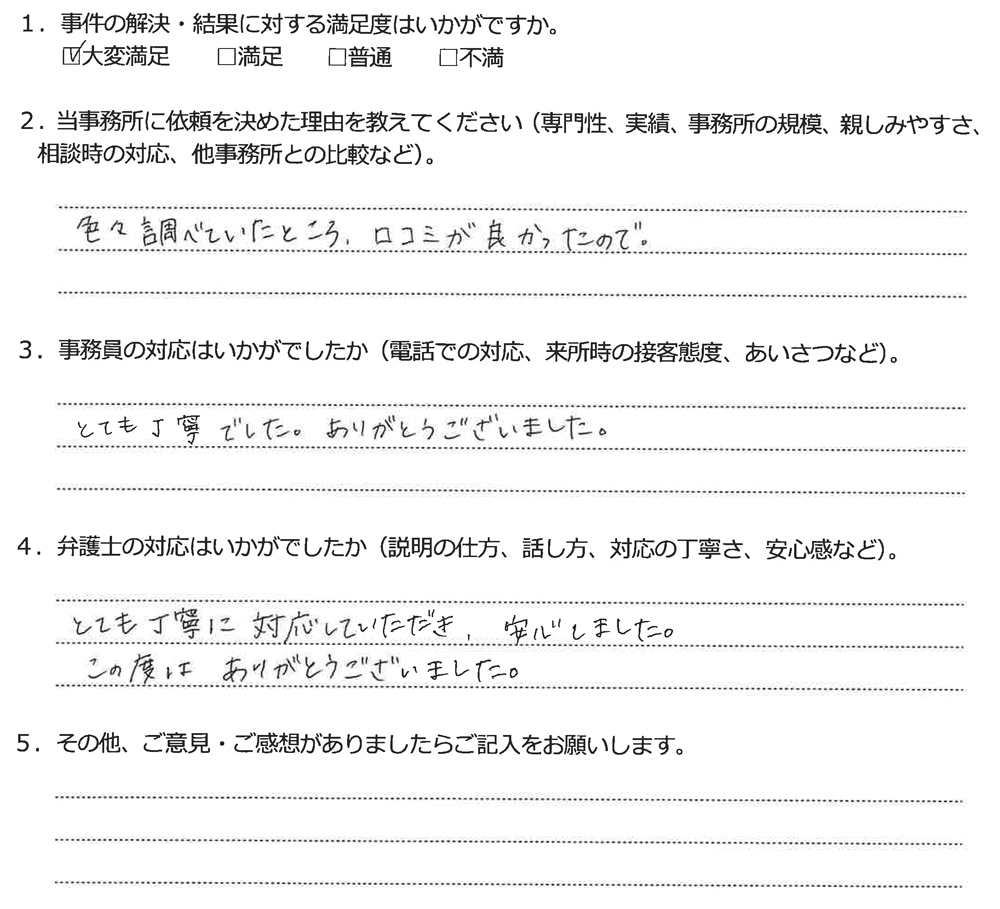 1．事件の解決・結果に対する満足度はいかがですか。
☑大変満足　□満足　□普通　□不満
2．当事務所に依頼を決めた理由を教えてください（専門性、実績、事務所の規模、親しみやすさ、
相談時の対応、他事務所との比較など）。
色々調べていたところ、口コミが良かったので。
3．事務員の対応はいかがでしたか（電話での対応、来所時の接客態度、あいさつなど）。
とても丁寧でした。ありがとうございました。
4．弁護士の対応はいかがでしたか（説明の仕方、話し方、対応の丁寧さ、安心感など）。
とても丁寧に対応していただき、安心しました。
この度はありがとうございました。
5．その他、ご意見・ご感想がありましたらご記入をお願いします。